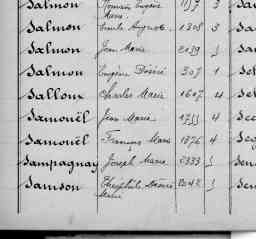 Salmon Romain Eugène 1197 3
Marie
Salmon Emile August 1308 3
Salmon Jean Marie 2139
Salmon Eugène Désiré 307 1
Salloux Charles Marie 1607 4
Samouël Jean Marie 1755 4
Samouël François Marie 1876 4
Sampagnay Joseph Marie 2333
Samson Théophile
Marie